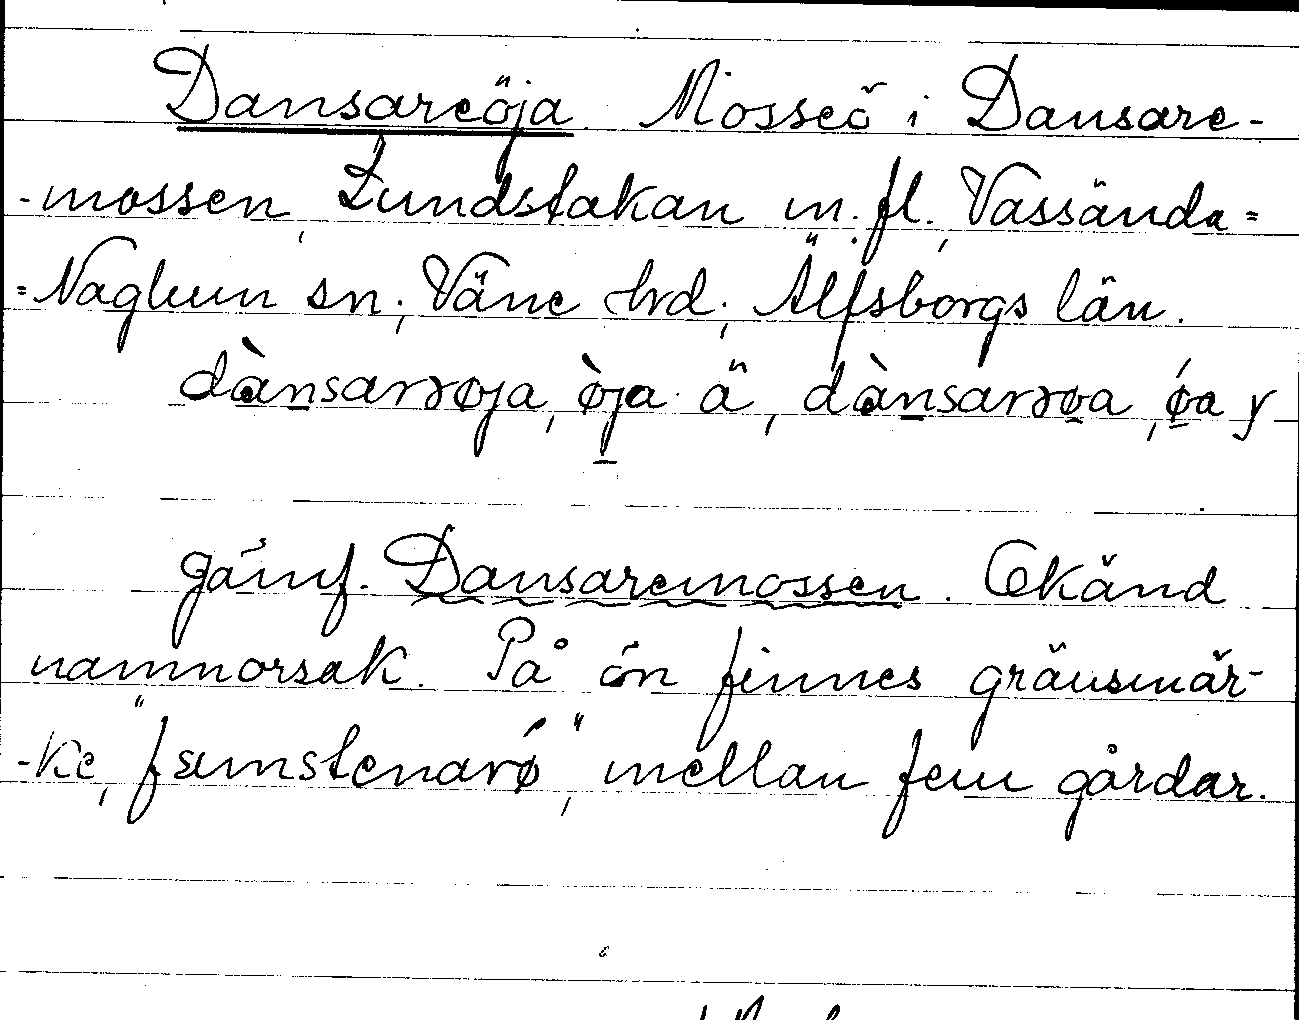 Dansareöja Mosseö i Dansare-
-mossen, Lundstakan m. fl., Vassända=
=Naglum sn; Väne hrd; Älfsborgs län.
dànsarrøja, øja ä, dànsarrøa, øa y
jämf. Dansaremossen. Okänd
namnorsak. På ön finnes gränsmär-
-ke, "fæmstenarø", mellan fem gårdar.